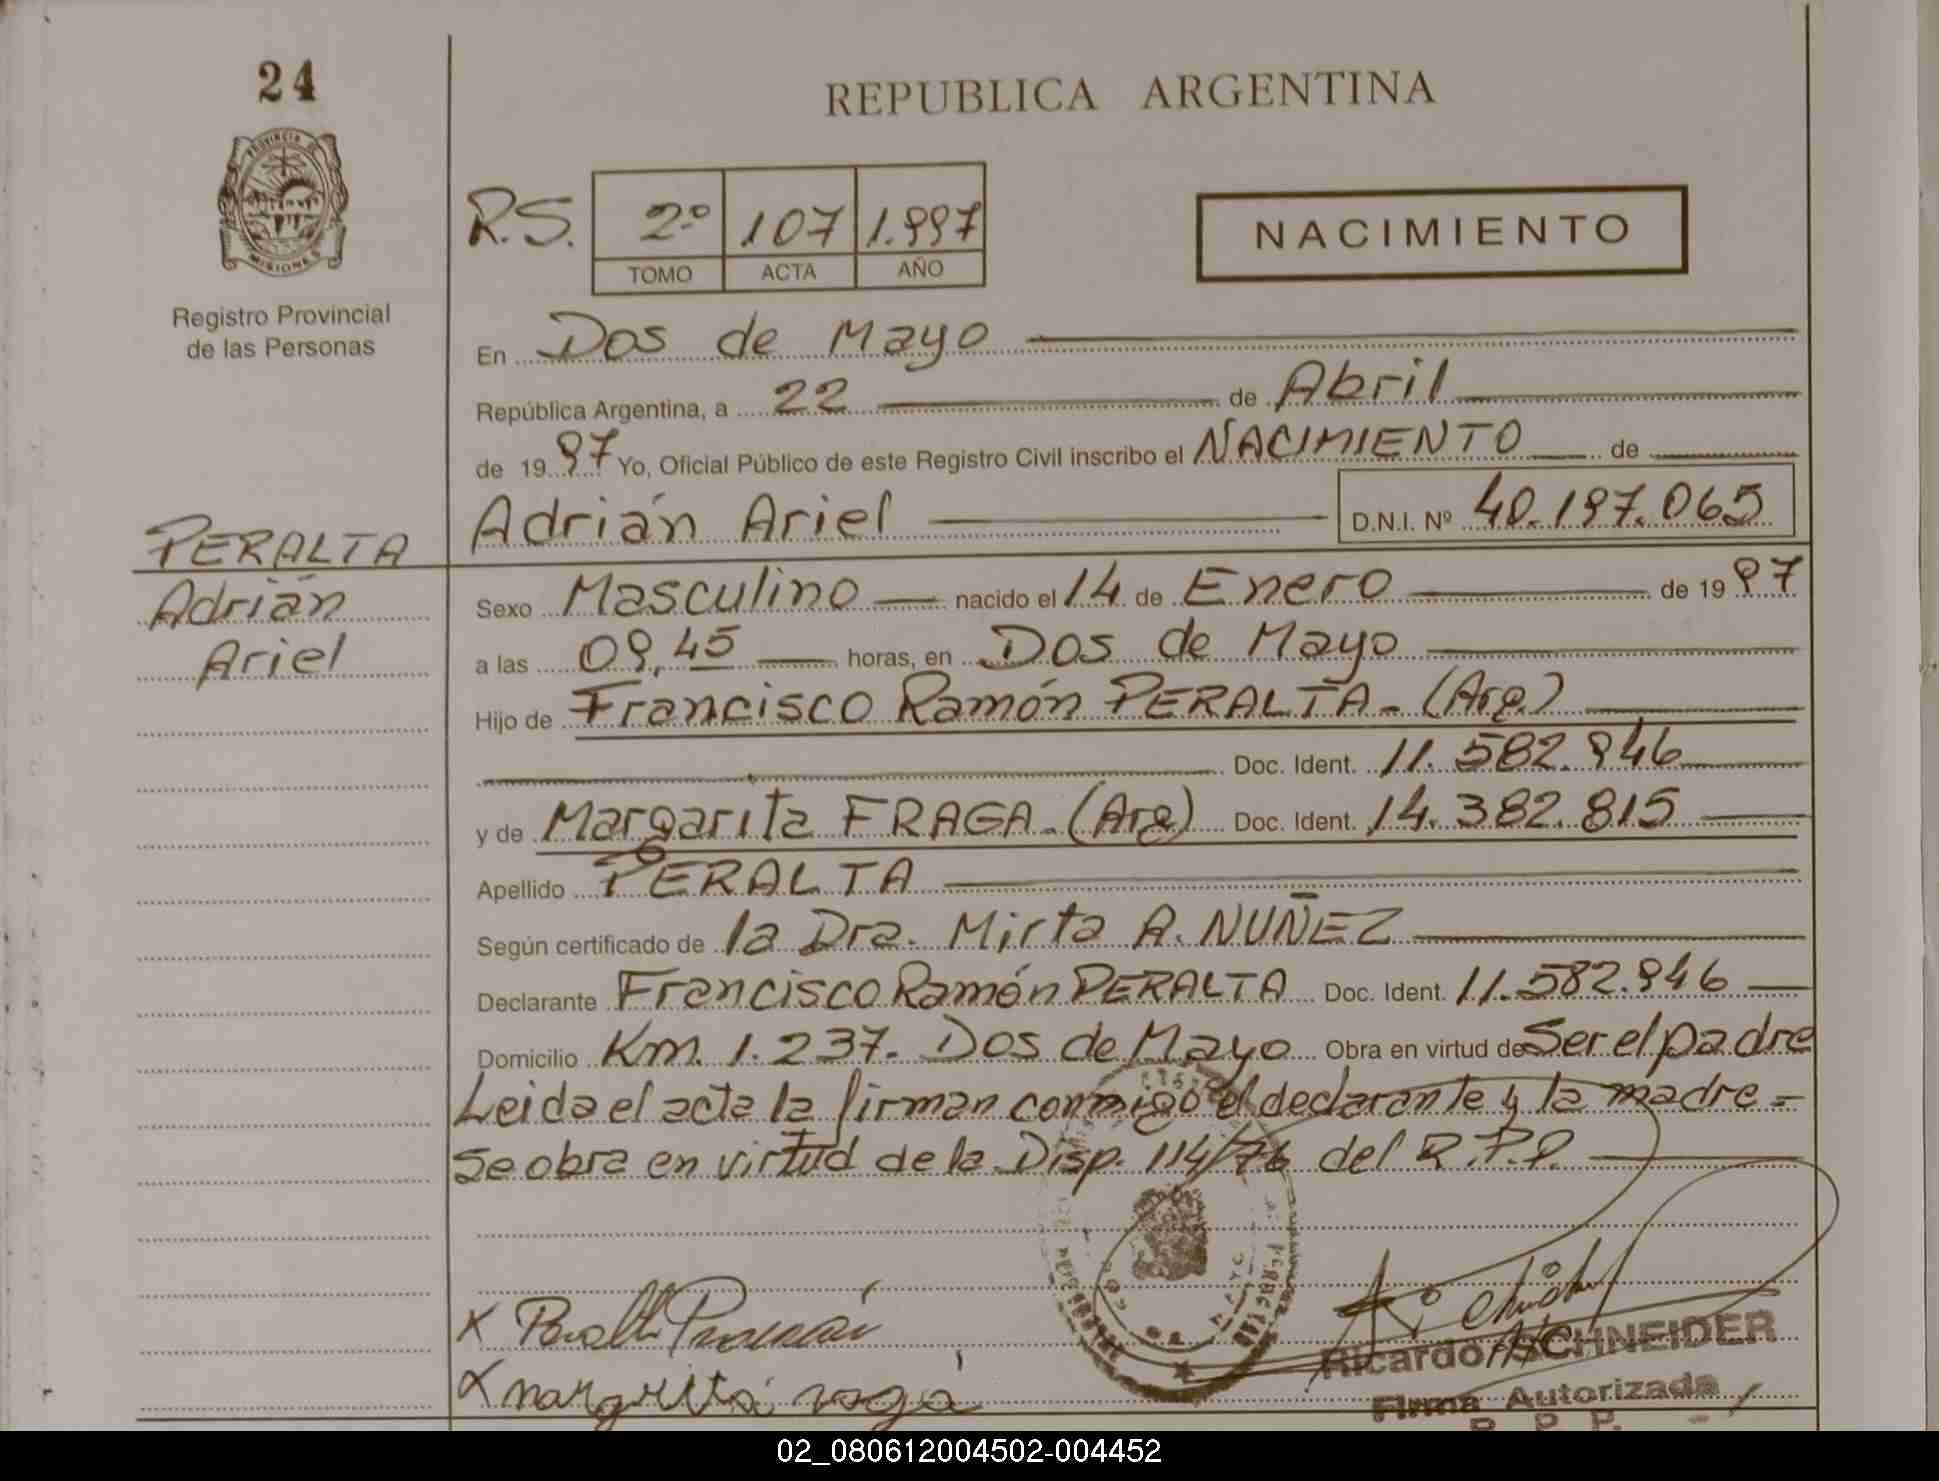 24
REPUBLICA ARGENTINA
PROVINCIA DE
MISIONES
Registro Provincial
de las Personas
R.S. 2º 107 1.997
TOMO ACTA AÑO
NACIMIENTO
En Dos de Mayo
República Argentina, a 22 de Abril
de 1997 Yo, Oficial Público de este Registro Civil inscribo el NACIMIENTO de
Adrián Ariel D.N.I. Nº 40.197.065
PERALTA
Adrián
Ariel
Sexo Masculino nacido el 14 de Enero de 1997
a las 09,45 horas, en Dos de Mayo
Hijo de Francisco Ramón PERALTA - (Arg.)
Doc. Ident. 11.582.946
y de Margarita FRAGA - (Arg) Doc. Ident. 14.382.815
Apellido PERALTA
Según certificado de la Dra. Mirta A. NUÑEZ
Declarante Francisco Ramón PERALTA Doc. Ident. 11.582.946
Domicilio Km. 1.237. Dos de Mayo Obra en virtud de Ser el padre
Leida el acta la firman conmigo el declarante y la madre =
Se obra en virtud de la Disp. 114/76 del R.P.P.
X Peralta
X margarita
Ricardo SCHNEIDER
Firma Autorizada
R. P. P.
02_080612004502-004452